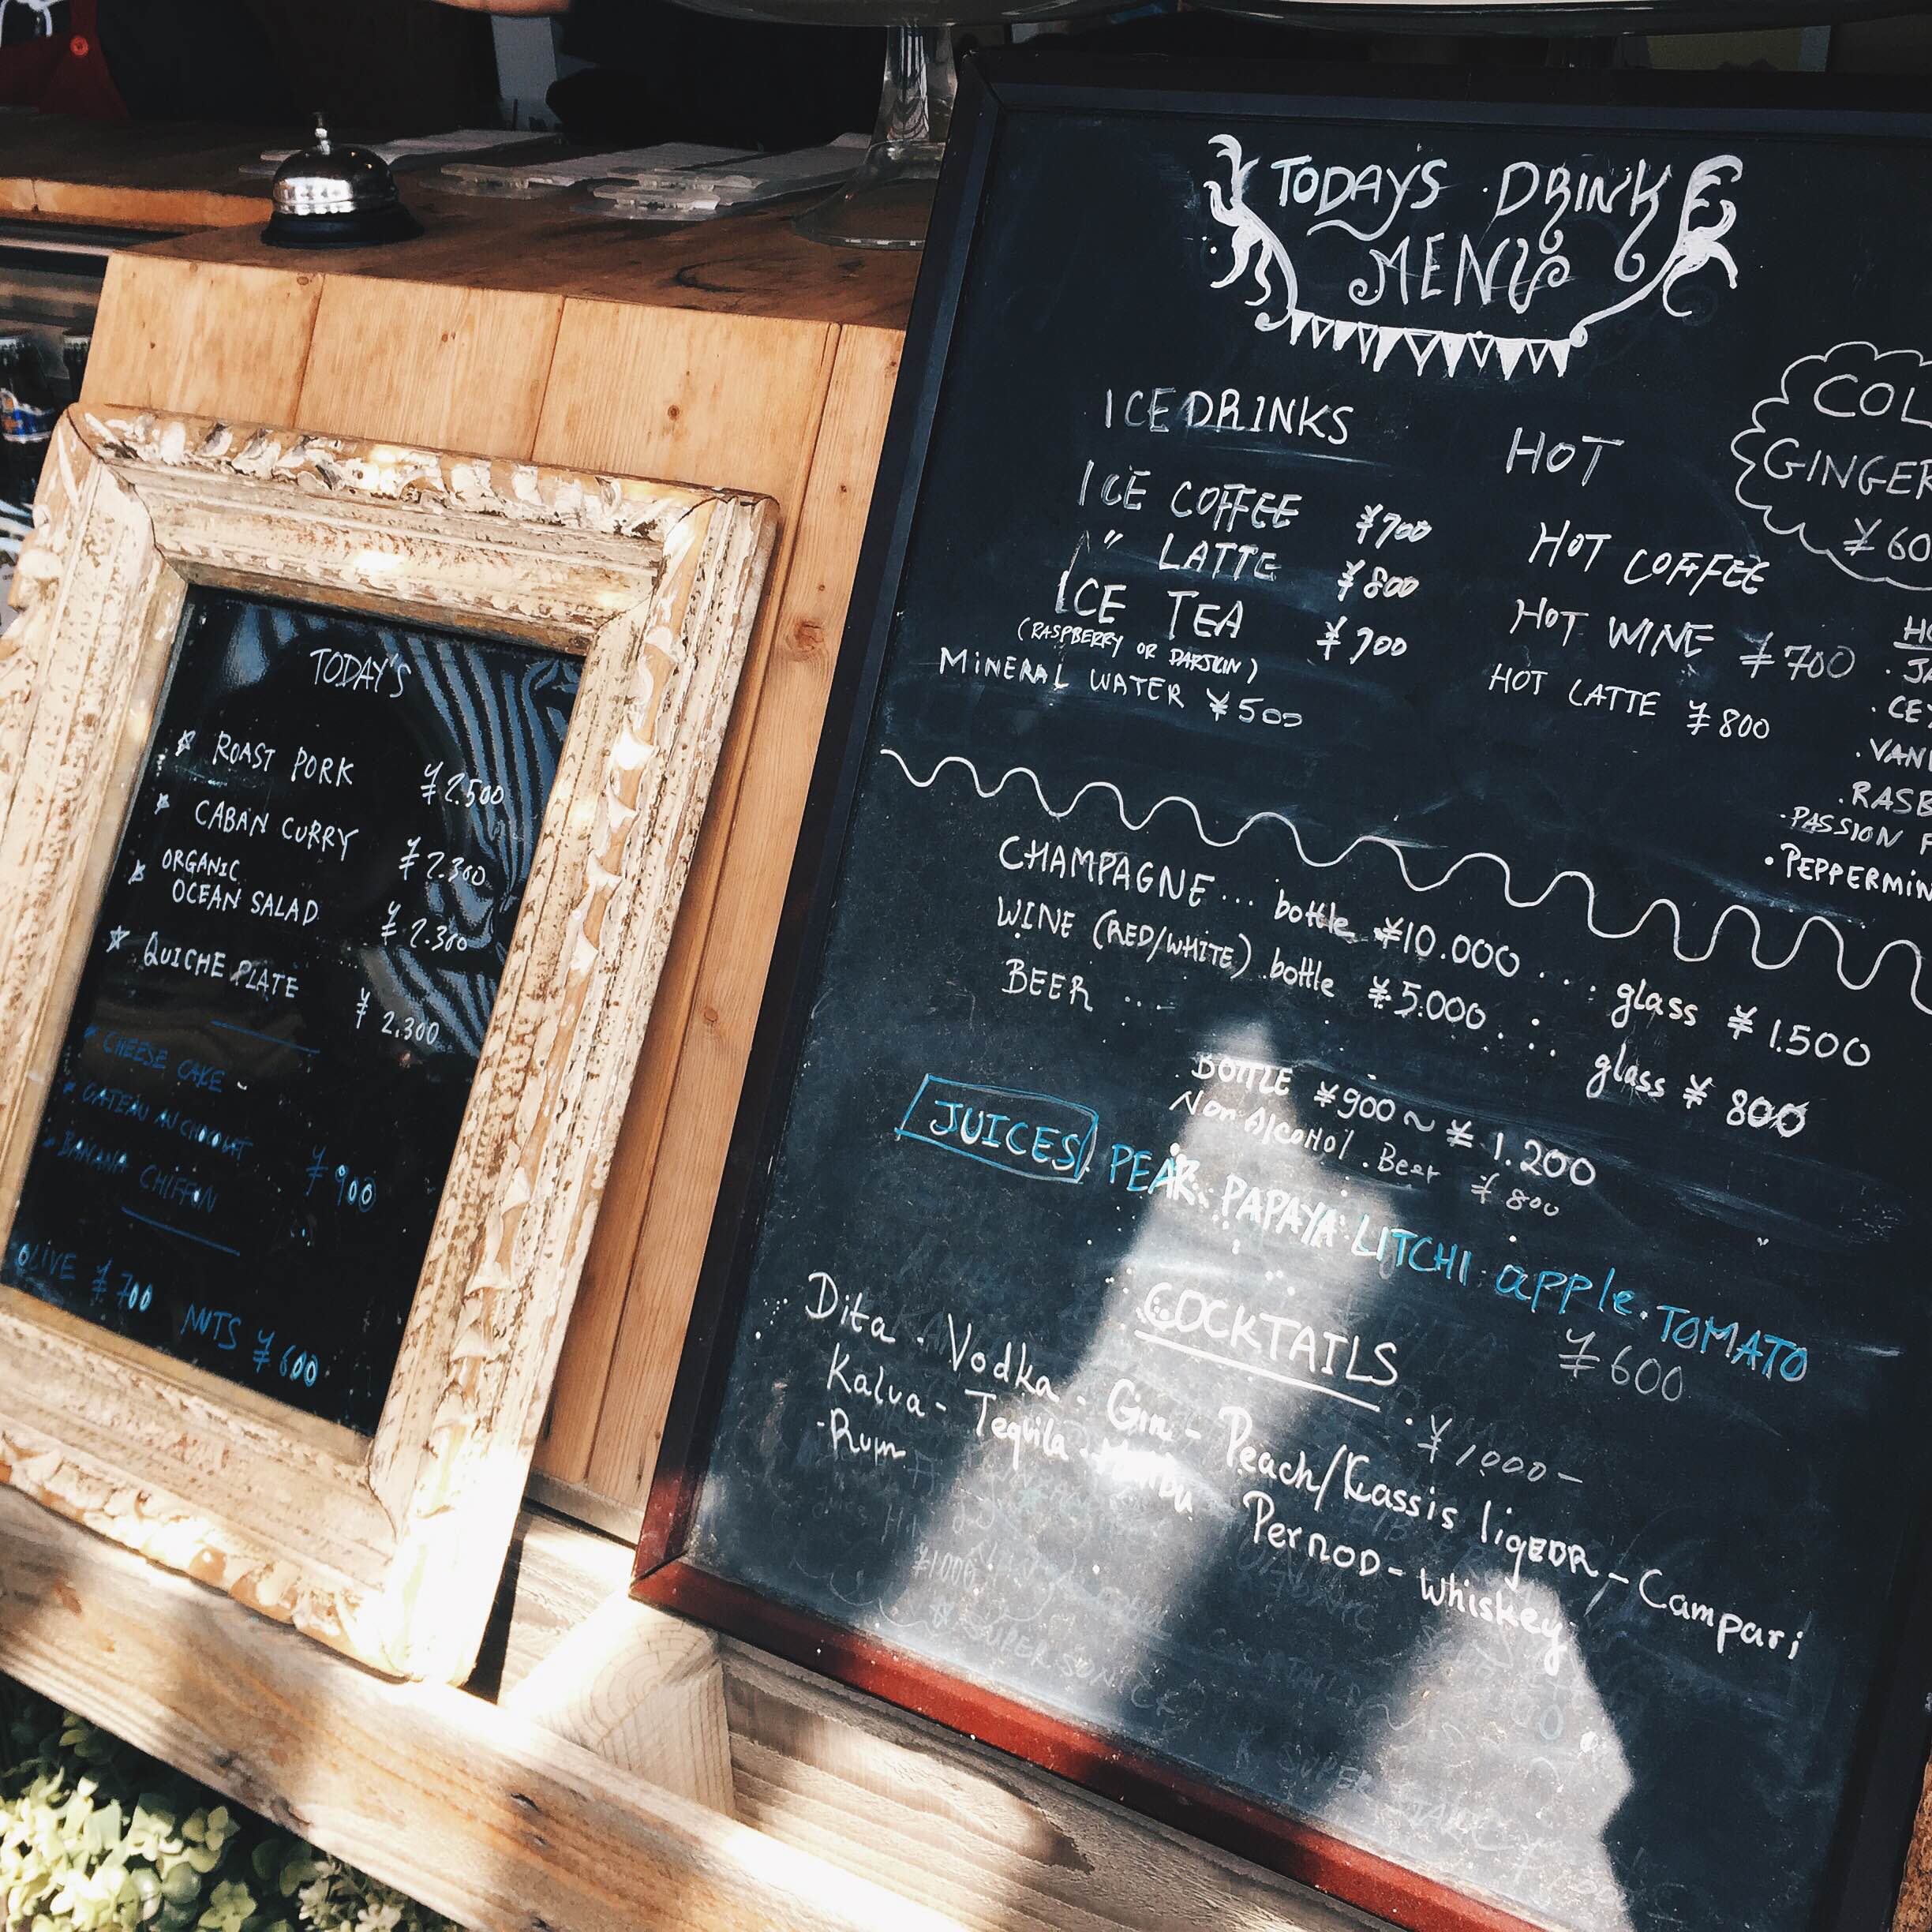 TODAY'S
ROAST PORK ¥2.500
CABAN CURRY ¥2.300
ORGANIC
OCEAN SALAD ¥2.300
QUICHE PLATE ¥2.300
CHEESE CAKE
GATEAU AU CHOCOLAT ¥900
BANANA CHIFFON
OLIVE ¥700 NUTS ¥600
TODAYS DRINK
MENU
ICE DRINKS
ICE COFFEE ¥700
〃 LATTE ¥800
ICE TEA ¥700
(RASPBERRY OR
MINERAL WATER ¥500
HOT
HOT COFFEE
HOT WINE ¥700
HOT LATTE ¥800
COL
GINGER
¥60
· VANI
· RASB
· PASSION F
· PEPPERMIN
CHAMPAGNE ... bottle ¥10.000 .... glass ¥1.500
WINE (RED/WHITE) bottle ¥5.000 .... glass ¥800
BEER ...
BOTTLE ¥900~¥1.200
Non Alcohol. Beer ¥800
JUICES PEAR. PAPAYA. LITCHI. apple. TOMATO
¥600
COCKTAILS · ¥1,000-
Dita - Vodka - Gin - Peach/Kassis liqEUR - Campari
Kalua - Tequila - Malibu - PerNOD - Whiskey
- Rum
¥1000
SUPER SONIC
SUPER